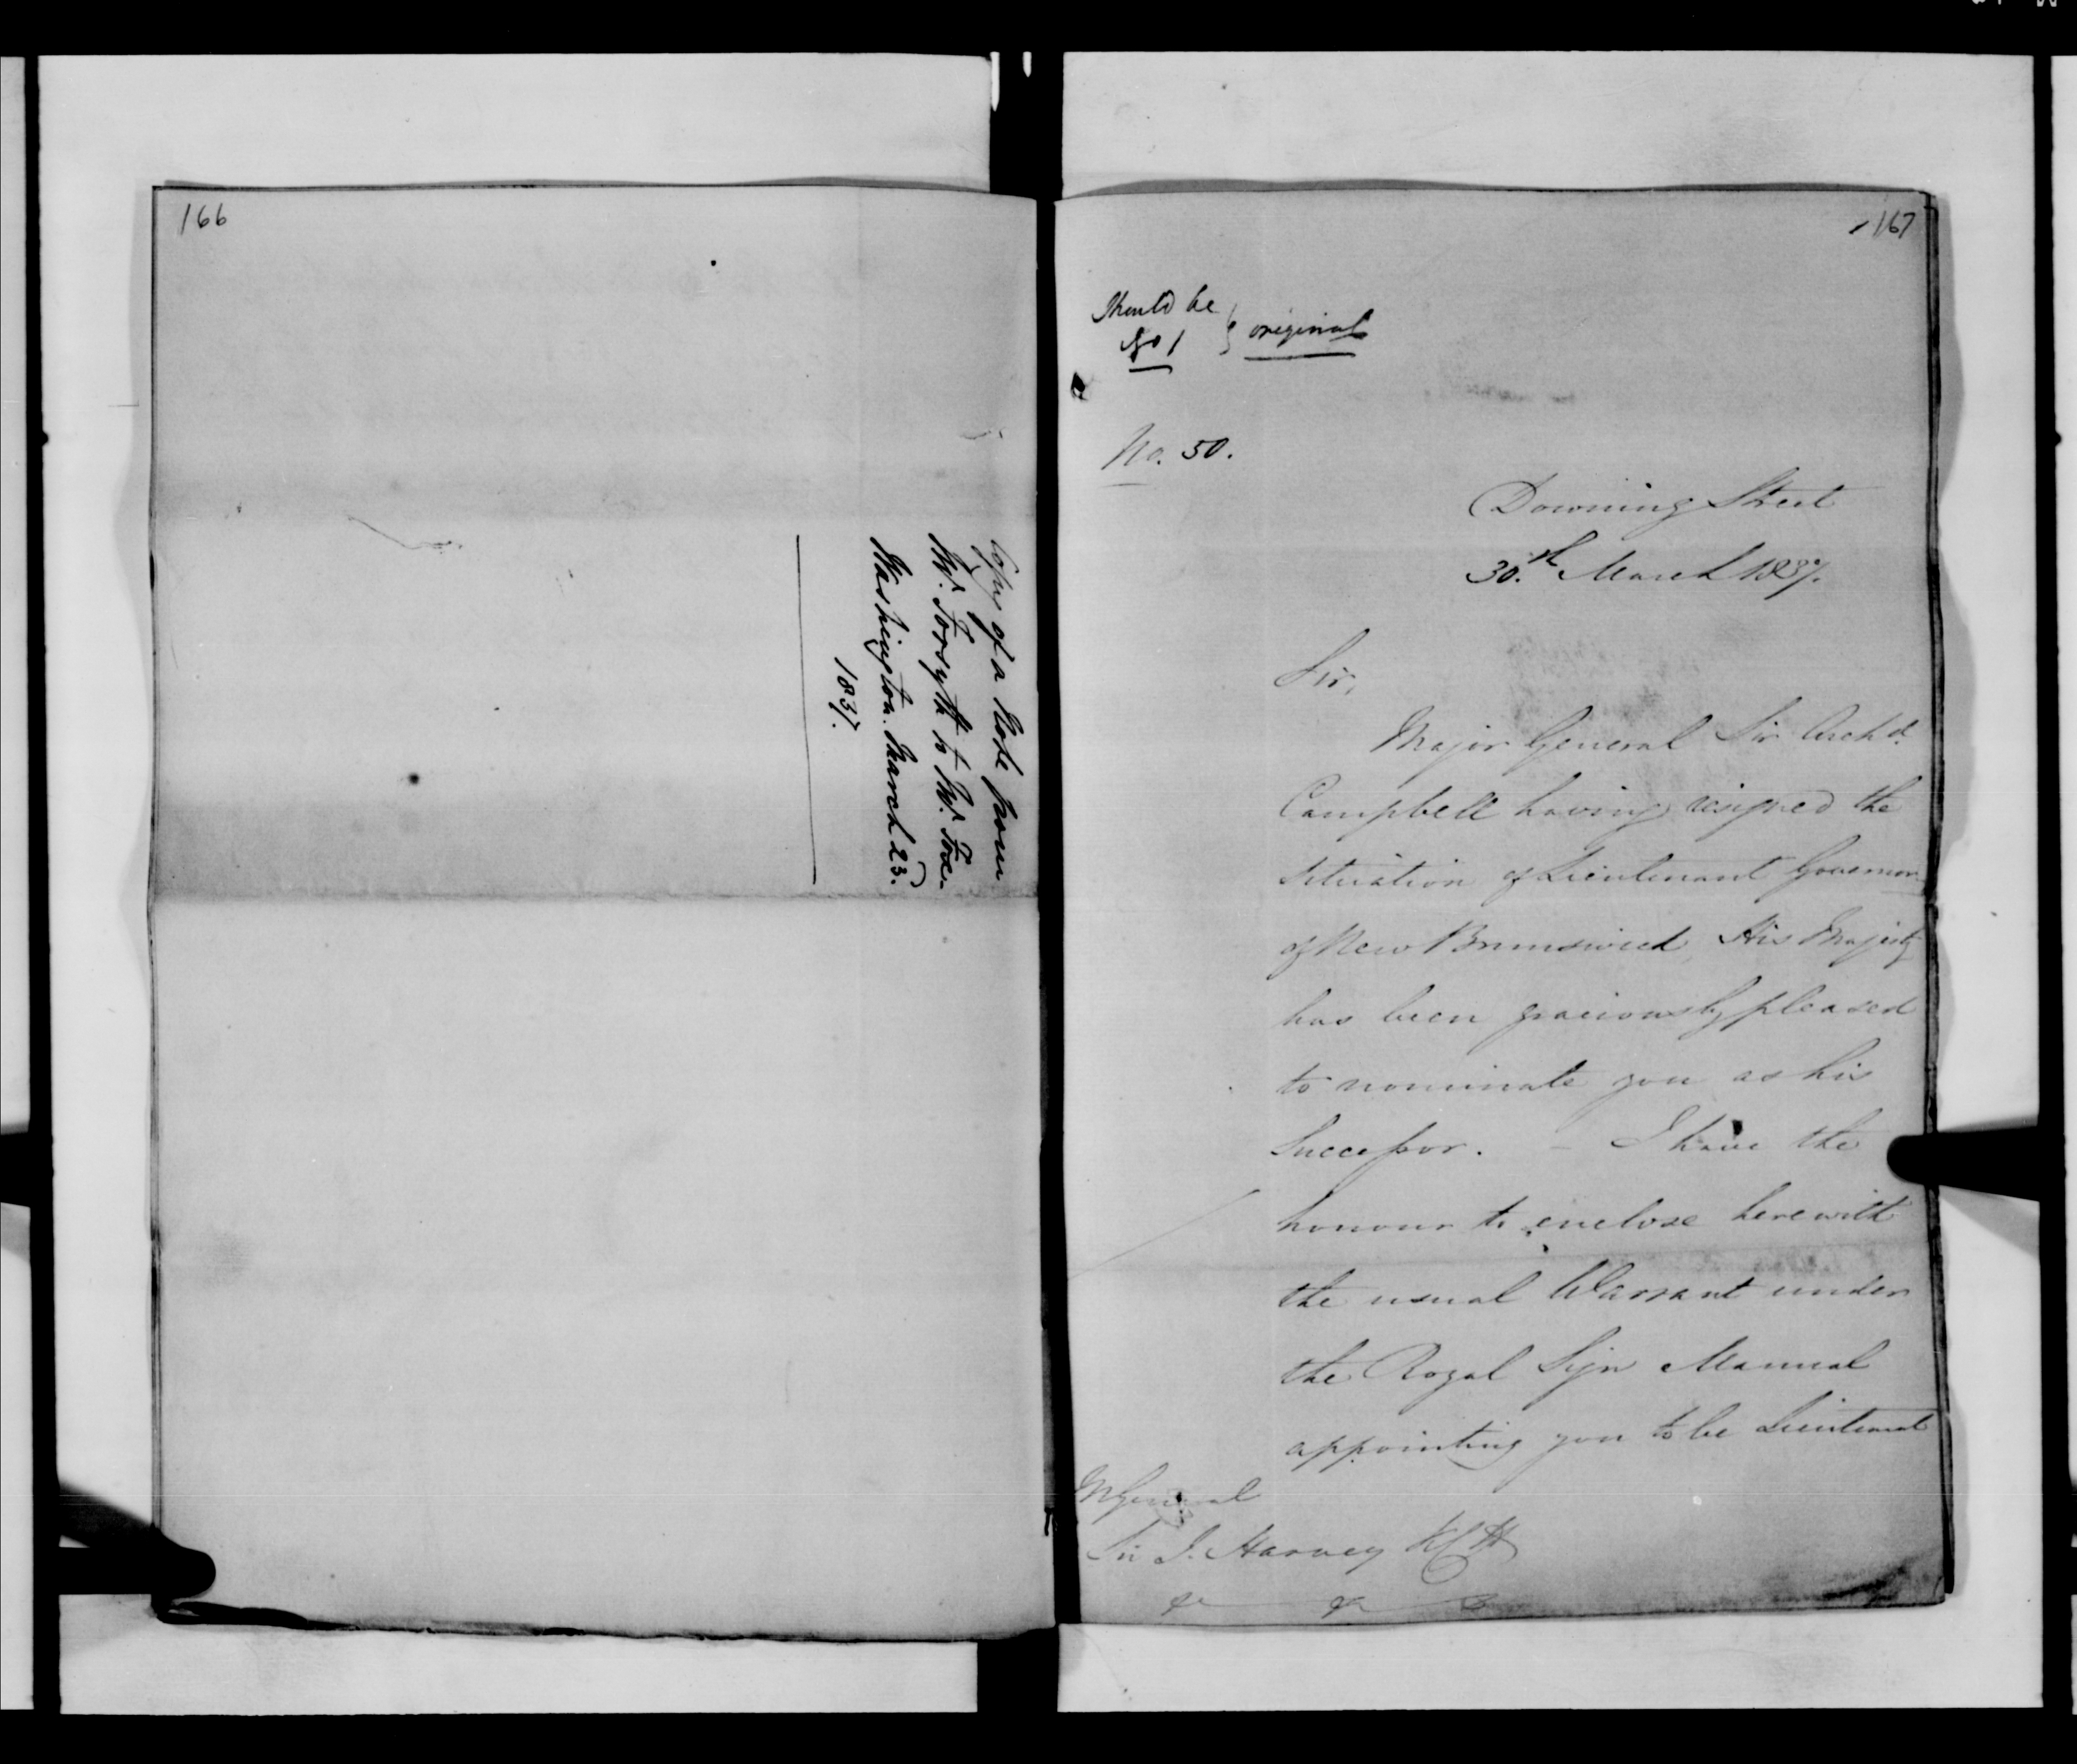 166
Copy of a Note from
Mr. Forsyth to Mr. Fox.
Washington. March 23.
1837.
167
Should be
No 1 } original
No. 50.
Downing Street
30.th March 1837.
Sir,
Major General Sir Archd.
Campbell having resigned the
situation of Lieutenant Governor
of New Brunswick, His Majesty
has been graciously pleased
to nominate you as his
Successor. – I have the
honour to enclose herewith
the usual Warrant under
the Royal Sign Manual
appointing you to be Lieutenant
M General
Sir J. Harvey KCH
&c &c &c